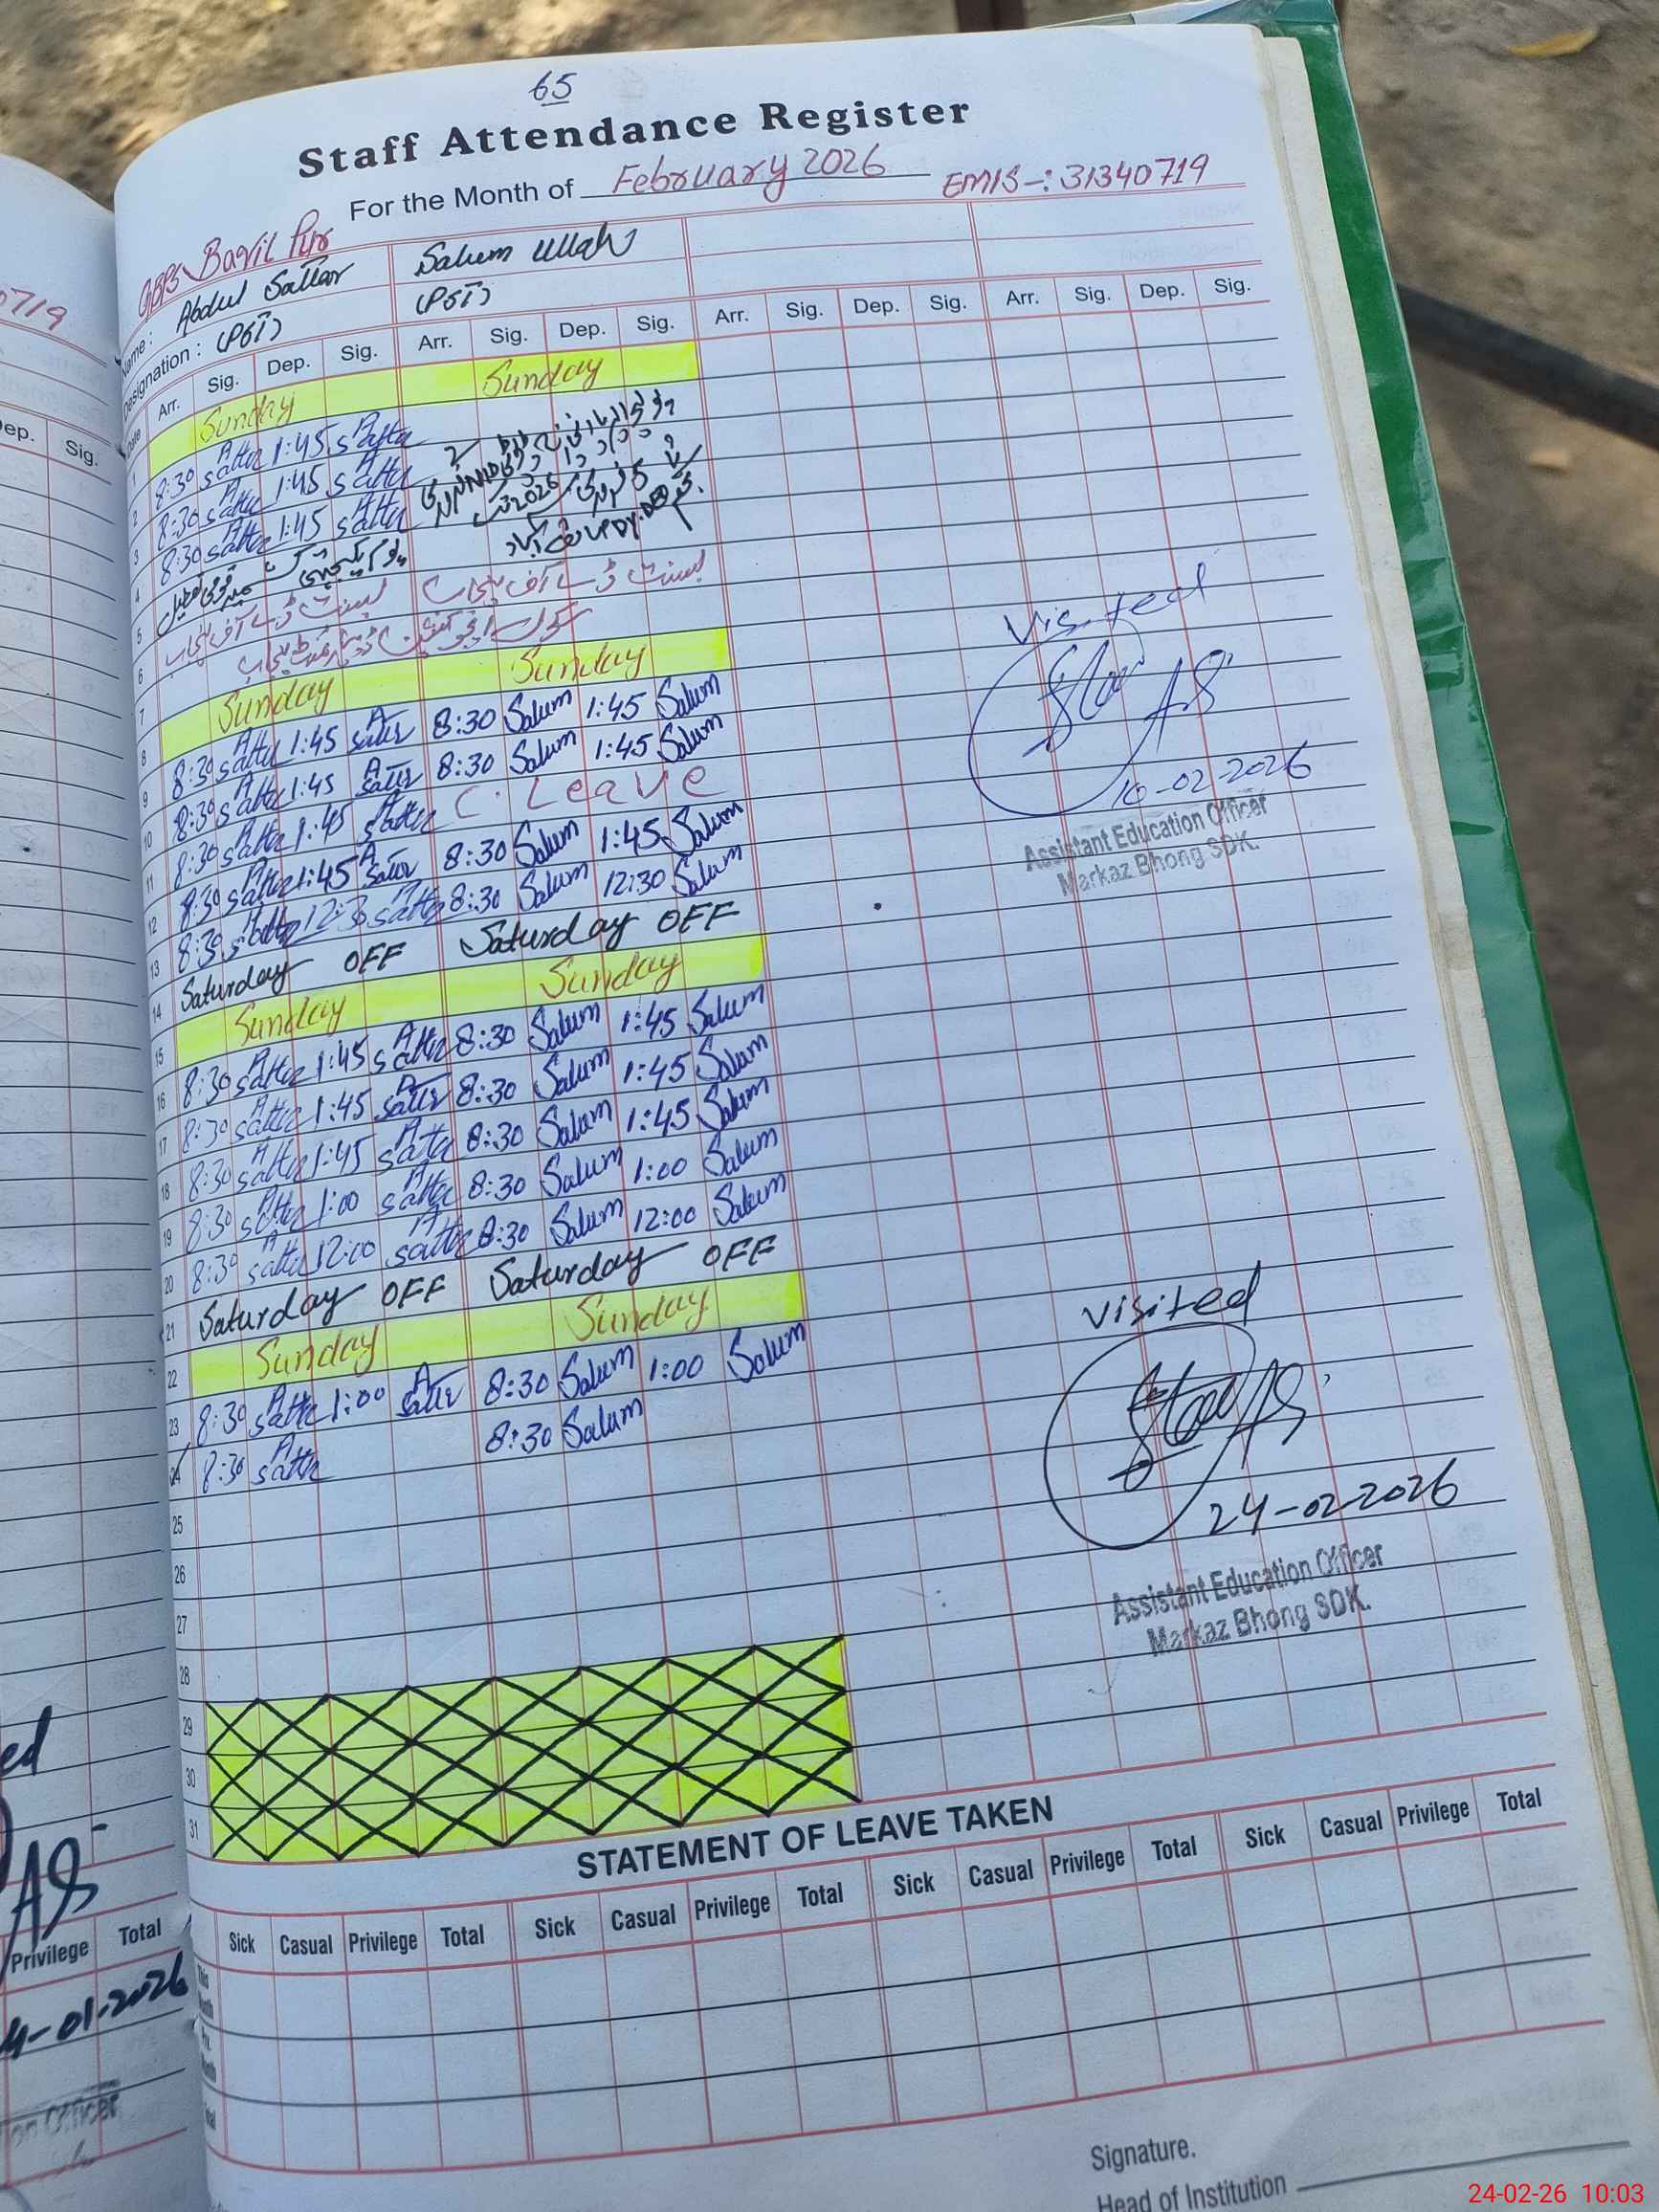 65
Staff Attendance Register
For the Month of February 2026 EMIS-: 31340719
GBPS Bagil Pur
Name : Abdul Sattar Salum Ullah
Designation : (PST) (PST)
Date Arr. Sig. Dep. Sig. Arr. Sig. Dep. Sig. Arr. Sig. Dep. Sig. Arr. Sig. Dep. Sig.
1 Sunday Sunday
2 8:30 A Sattar 1:45 A Sattar
3 8:30 A Sattar 1:45 A Sattar
4 8:30 A Sattar 1:45 A Sattar
5 یوم یکجہتی کشمیر قومی تعطیل
6 بسنت ڈے آف پنجاب بسنت ڈے آف پنجاب
7
8 Sunday Sunday
9 8:30 A Sattar 1:45 A Sattar 8:30 Salum 1:45 Salum
10 8:30 A Sattar 1:45 A Sattar 8:30 Salum 1:45 Salum
11 8:30 A Sattar 1:45 A Sattar C. Leave
12 8:30 A Sattar 1:45 A Sattar 8:30 Salum 1:45 Salum
13 8:30 A Sattar 12:30 A Sattar 8:30 Salum 12:30 Salum
14 Saturday OFF Saturday OFF
15 Sunday Sunday
16 8:30 A Sattar 1:45 A Sattar 8:30 Salum 1:45 Salum
17 8:30 A Sattar 1:45 A Sattar 8:30 Salum 1:45 Salum
18 8:30 A Sattar 1:45 A Sattar 8:30 Salum 1:45 Salum
19 8:30 A Sattar 1:00 A Sattar 8:30 Salum 1:00 Salum
20 8:30 A Sattar 12:00 A Sattar 8:30 Salum 12:00 Salum
21 Saturday OFF Saturday OFF
22 Sunday Sunday
23 8:30 A Sattar 1:00 A Sattar 8:30 Salum 1:00 Salum
24 8:30 A Sattar 8:30 Salum
25
26
27
28
29
30
31
Visited
10-02-2026
Assistant Education Officer
Markaz Bhong SDK.
Visited
24-02-2026
Assistant Education Officer
Markaz Bhong SDK.
STATEMENT OF LEAVE TAKEN
Sick Casual Privilege Total Sick Casual Privilege Total Sick Casual Privilege Total Sick Casual Privilege Total
Signature.
Head of Institution
0719
Dep. Sig.
Privilege Total
4-01-2026
24-02-26 10:03